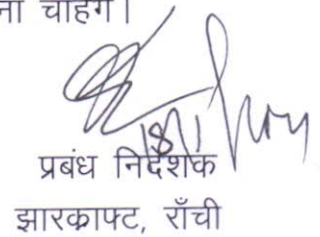 ना चाहेंगे।
प्रबंध निदेशक
झारक्राफ्ट, राँची